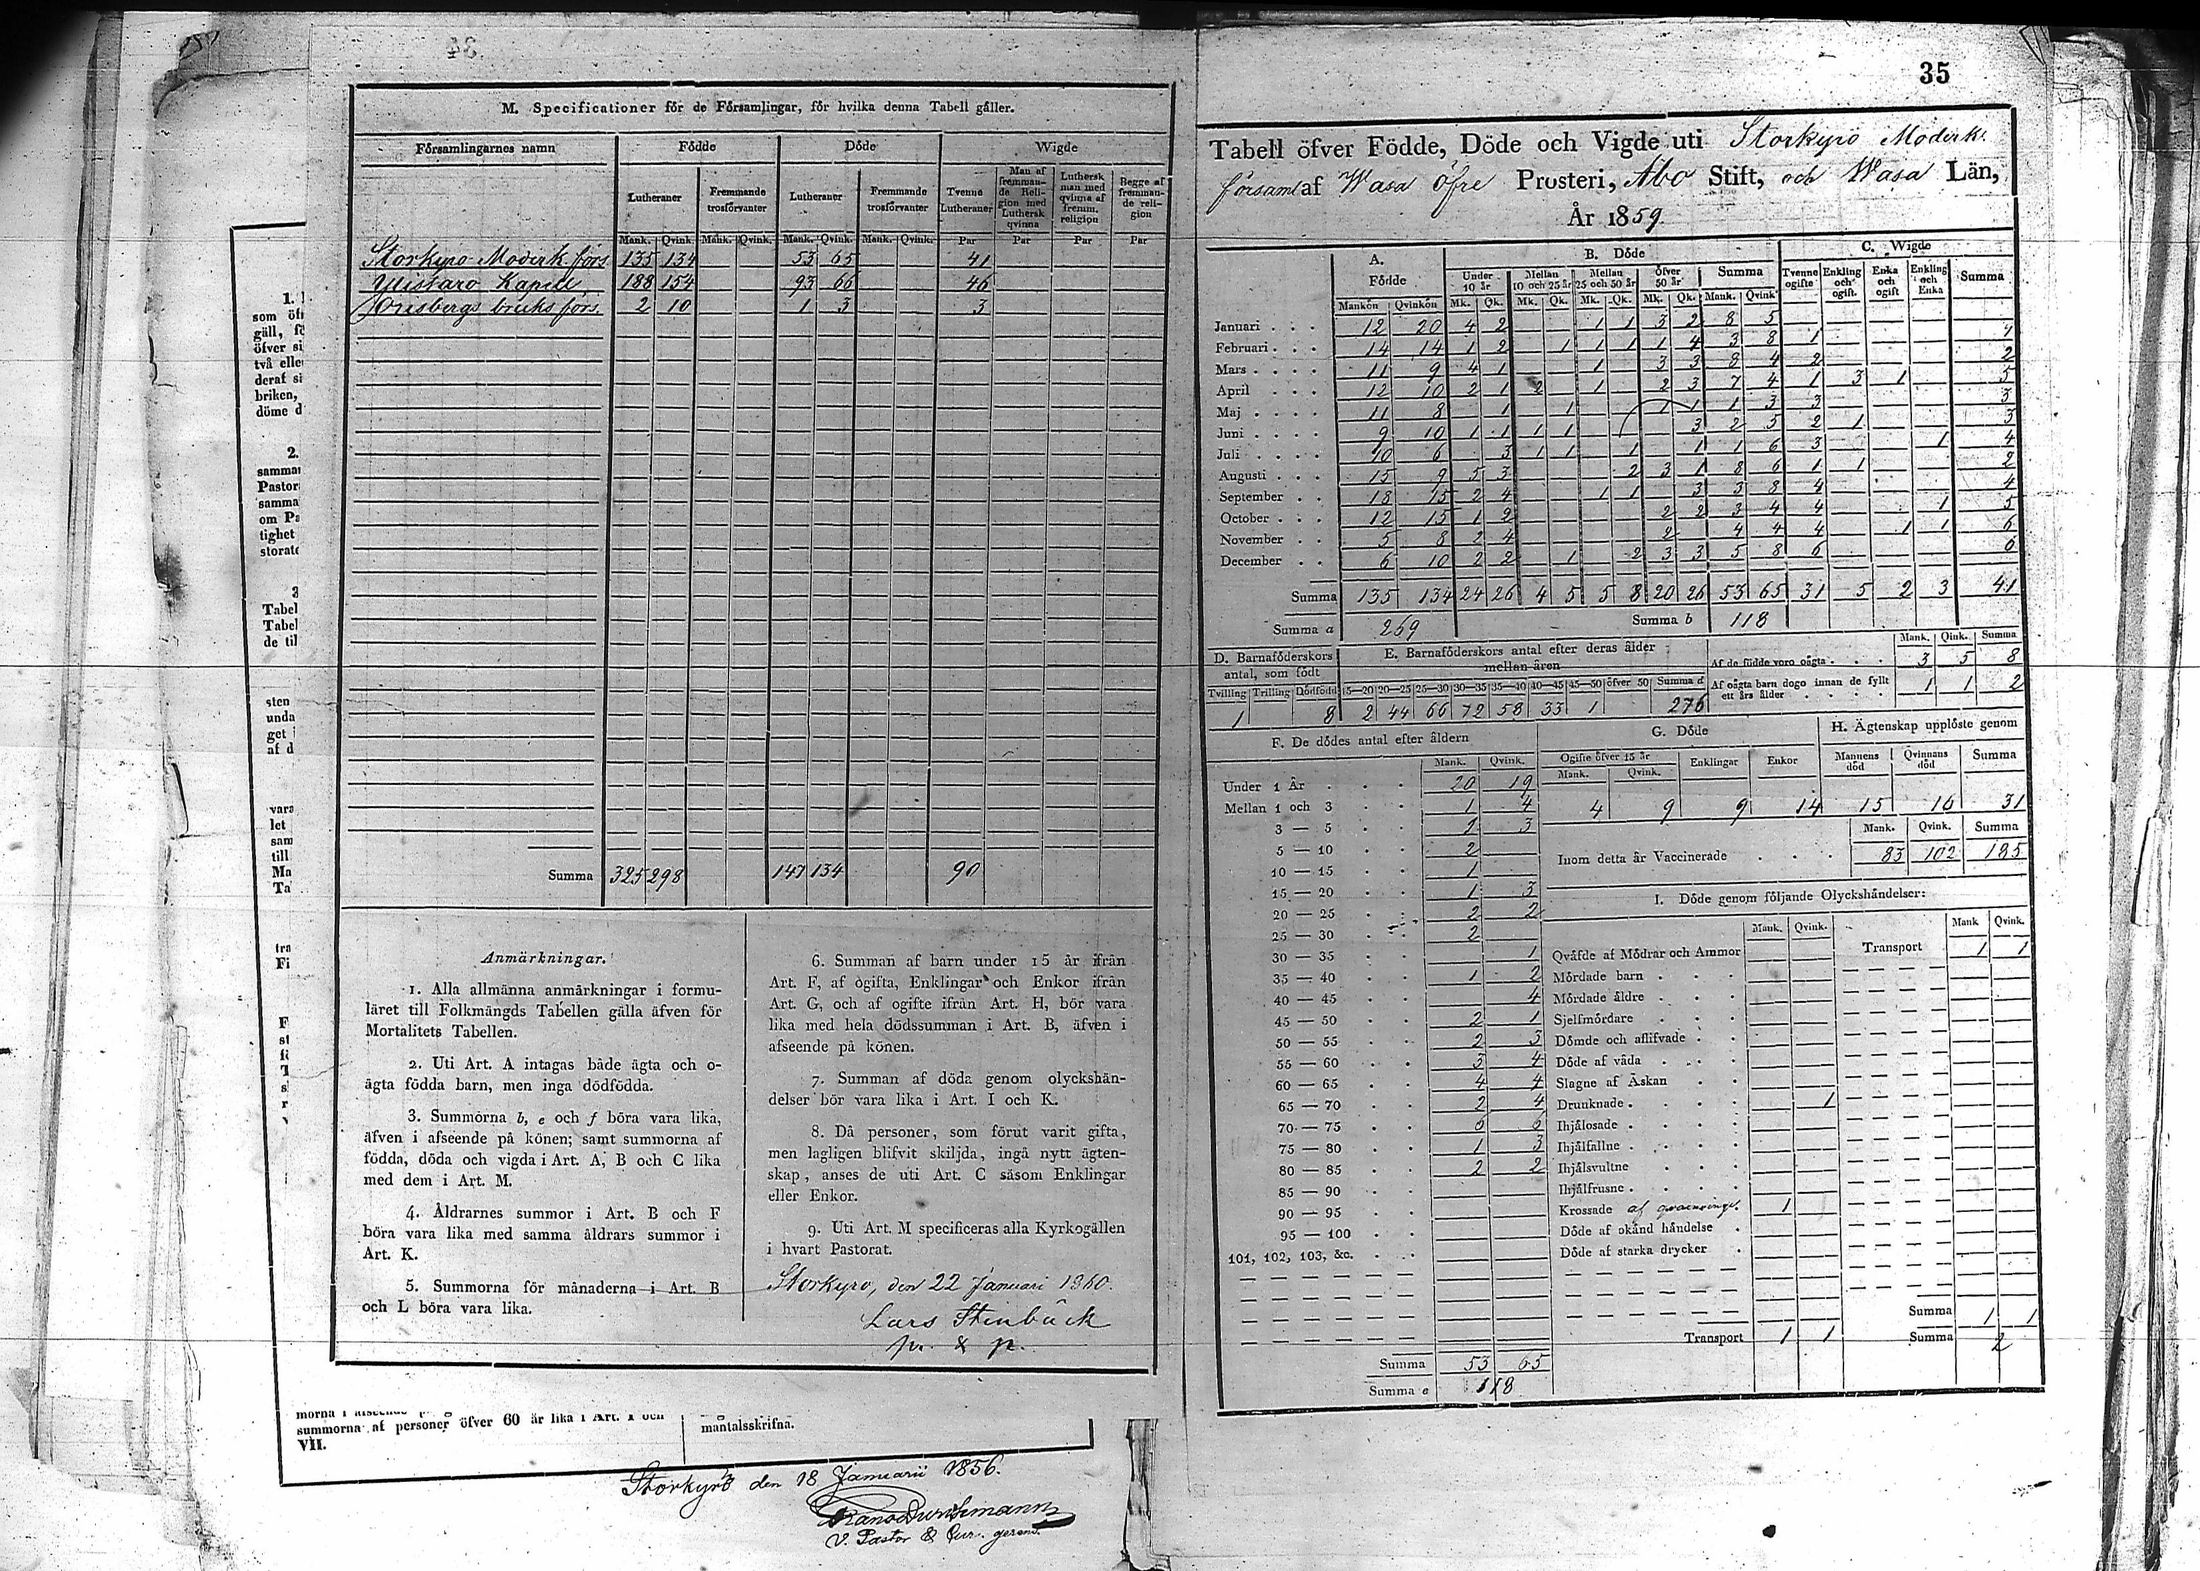 34
M. Specificationer för de Församlingar, för hvilka denna Tabell gäller.
Församlingarnes namn Födde Döde Wigde
Lutheraner Fremmande trosförvanter Lutheraner Fremmande trosförvanter Tvenne Lutheraner Man af fremmande Religion med Luthersk qvinna Luthersk man med qvinna af fremm. religion Begge af fremmande religion
Mank. Qvink. Mank. Qvink. Mank. Qvink. Mank. Qvink. Par Par Par Par
Storkyro Moderk förs 135 134 53 65 41
Ylistaro Kapell 188 154 93 66 46
Orisbergs bruks förs. 2 10 1 3 3
Summa 325 298 147 134 90
Anmärkningar.
1. Alla allmänna anmärkningar i formu-
läret till Folkmängds Tabellen gälla äfven för
Mortalitets Tabellen.
2. Uti Art. A intagas både ägta och o-
ägta födda barn, men inga dödfödda.
3. Summorna b, e och f böra vara lika,
äfven i afseende på könen; samt summorna af
födda, döda och vigda i Art. A, B och C lika
med dem i Art. M.
4. Åldrarnes summor i Art. B och F
böra vara lika med samma åldrars summor i
Art. K.
5. Summorna för månaderna i Art. B
och L böra vara lika.
6. Summan af barn under 15 år ifrån
Art. F, af ogifta, Enklingar och Enkor ifrån
Art. G, och af ogifte ifrån Art. H, bör vara
lika med hela dödssumman i Art. B, äfven i
afseende på könen.
7. Summan af döda genom olyckshän-
delser bör vara lika i Art. I och K.
8. Då personer, som förut varit gifta,
men lagligen blifvit skiljda, ingå nytt ägten-
skap, anses de uti Art. C såsom Enklingar
eller Enkor.
9. Uti Art. M specificeras alla Kyrkogällen
i hvart Pastorat.
Storkyro, den 22 Januari 1860.
Lars Stenbäck
p. & p.
summorna af personer öfver 60 år lika i Art. I och
VII.
mantalsskrifna.
Storkyrö den 18 Januarii 1856.
V. Pastor & Cur. gerens.
35
Tabell öfver Födde, Döde och Vigde uti Storkyro Moderk.
församl af Wasa öfre Prosteri, Åbo Stift, och Wasa Län,
År 1859.
A. Födde B. Döde C. Wigde
Under 10 år Mellan 10 och 25 år Mellan 25 och 50 år Öfver 50 år Summa Tvenne ogifte Enkling och ogift. Enka och ogift Enkling och Enka Summa
Mankön Qvinkön Mk. Qk. Mk. Qk. Mk. Qk. Mk. Qk. Mank. Qvink
Januari 12 20 4 2 1 1 3 2 8 5
Februari 14 14 1 2 1 1 1 1 4 3 8 1
Mars 11 9 4 1 1 3 3 8 4 2 2
April 12 10 2 1 2 1 2 3 7 4 1 3 1 5
Maj 11 8 1 1 1 1 1 3 3 3
Juni 9 10 1 1 1 1 3 2 5 2 1 3
Juli 10 6 3 1 1 1 1 1 6 3 1 4
Augusti 15 9 5 3 2 3 1 8 6 1 1 2
September 18 15 2 4 1 1 3 3 8 4 4
October 12 15 1 2 2 2 3 4 4 1 5
November 5 8 2 4 2 4 4 4 1 1 6
December 6 10 2 2 1 2 3 3 5 8 6 6
Summa 135 134 24 26 4 5 5 8 20 26 53 65 31 5 2 3 41
Summa a 269 Summa b 118
D. Barnaföderskors antal, som födt
Tvilling Trilling Dödfödd
1 8
E. Barnaföderskors antal efter deras ålder mellan åren
15—20 20—25 25—30 30—35 35—40 40—45 45—50 öfver 50 Summa d
2 44 66 72 58 33 1 276
Mank. Qink. Summa
Af de födde voro oägta 3 5 8
Af oägta barn dogo innan de fyllt ett års ålder 1 1 2
F. De dödes antal efter åldern
Mank. Qvink.
Under 1 År 20 19
Mellan 1 och 3 1 4
3 — 5 2 3
5 — 10 2
10 — 15 1
15 — 20 1 3
20 — 25 2 2
25 — 30 2
30 — 35 1
35 — 40 1 2
40 — 45 4
45 — 50 2 1
50 — 55 2 3
55 — 60 3 4
60 — 65 4 4
65 — 70 2 4
70 — 75 6 6
75 — 80 1 3
80 — 85 2 2
85 — 90
90 — 95
95 — 100
101, 102, 103, &c.
Summa 53 65
Summa e 118
G. Döde
Ogifte öfver 15 år Enklingar Enkor
Mank. Qvink.
4 9 9 14
H. Ägtenskap upplöste genom
Mannens död Qvinnans död Summa
15 16 31
Mank. Qvink. Summa
Inom detta år Vaccinerade 83 102 185
I. Döde genom följande Olyckshändelser:
Mank. Qvink. Mank Qvink.
Qväfde af Mödrar och Ammor Transport 1 1
Mördade barn
Mördade äldre
Sjelfmördare
Dömde och aflifvade
Döde af våda
Slagne af Åskan
Drunknade 1
Ihjälosade
Ihjälfallne
Ihjälsvultne
Ihjälfrusne
Krossade af 1
Döde af okänd händelse
Döde af starka drycker
Summa 1 1
Transport 1 1 Summa 2